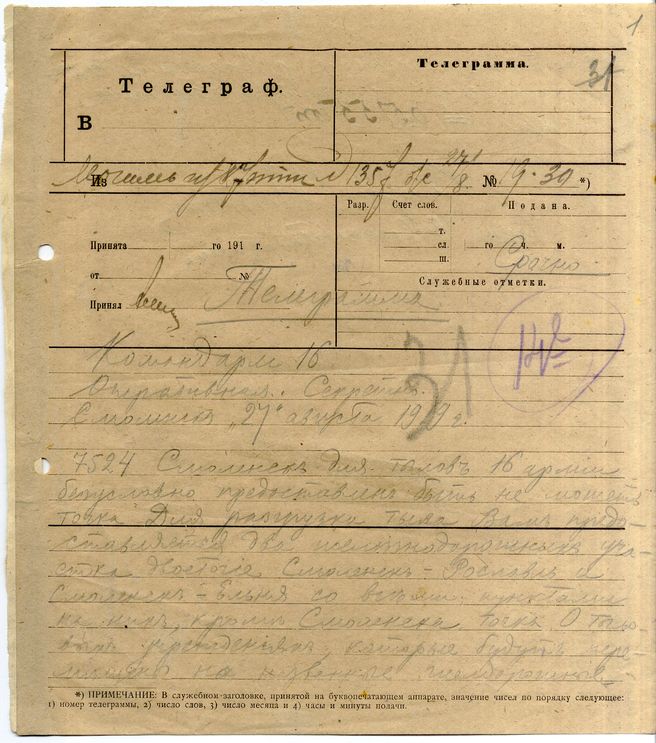 1
Телеграф.
Телеграмма.
31
В
Из 27/8 № 19·30 *)
Разр. Счет слов. Подана.
Принята го 191 г.
т.
сл. го ч. м.
ш.
Срочно
от №
Служебные отметки.
Принял
Телеграмма
Командарм 16
31
Оперативная. Секретн.
Смоленск „27" августа 1919 г.
7524 Смоленскъ для тыловъ 16 армии
безусловно предоставленъ быть не можетъ
точка Для разгрузки тыла Вамъ предо-
ставляется два железнодорожныхъ уча-
стка двоеточие Смоленскъ – Рославль и
Смоленскъ – Ельня со всеми пунктами
на нихъ, кроме Смоленска точка О тыло-
выхъ учрежденияхъ, которые будутъ пере-
на железнодорожные
*) ПРИМЕЧАНИЕ: В служебном-заголовке, принятой на буквопечатающем аппарате, значение чисел по порядку следующее:
1) номер телеграммы, 2) число слов, 3) число месяца и 4) часы и минуты подачи.